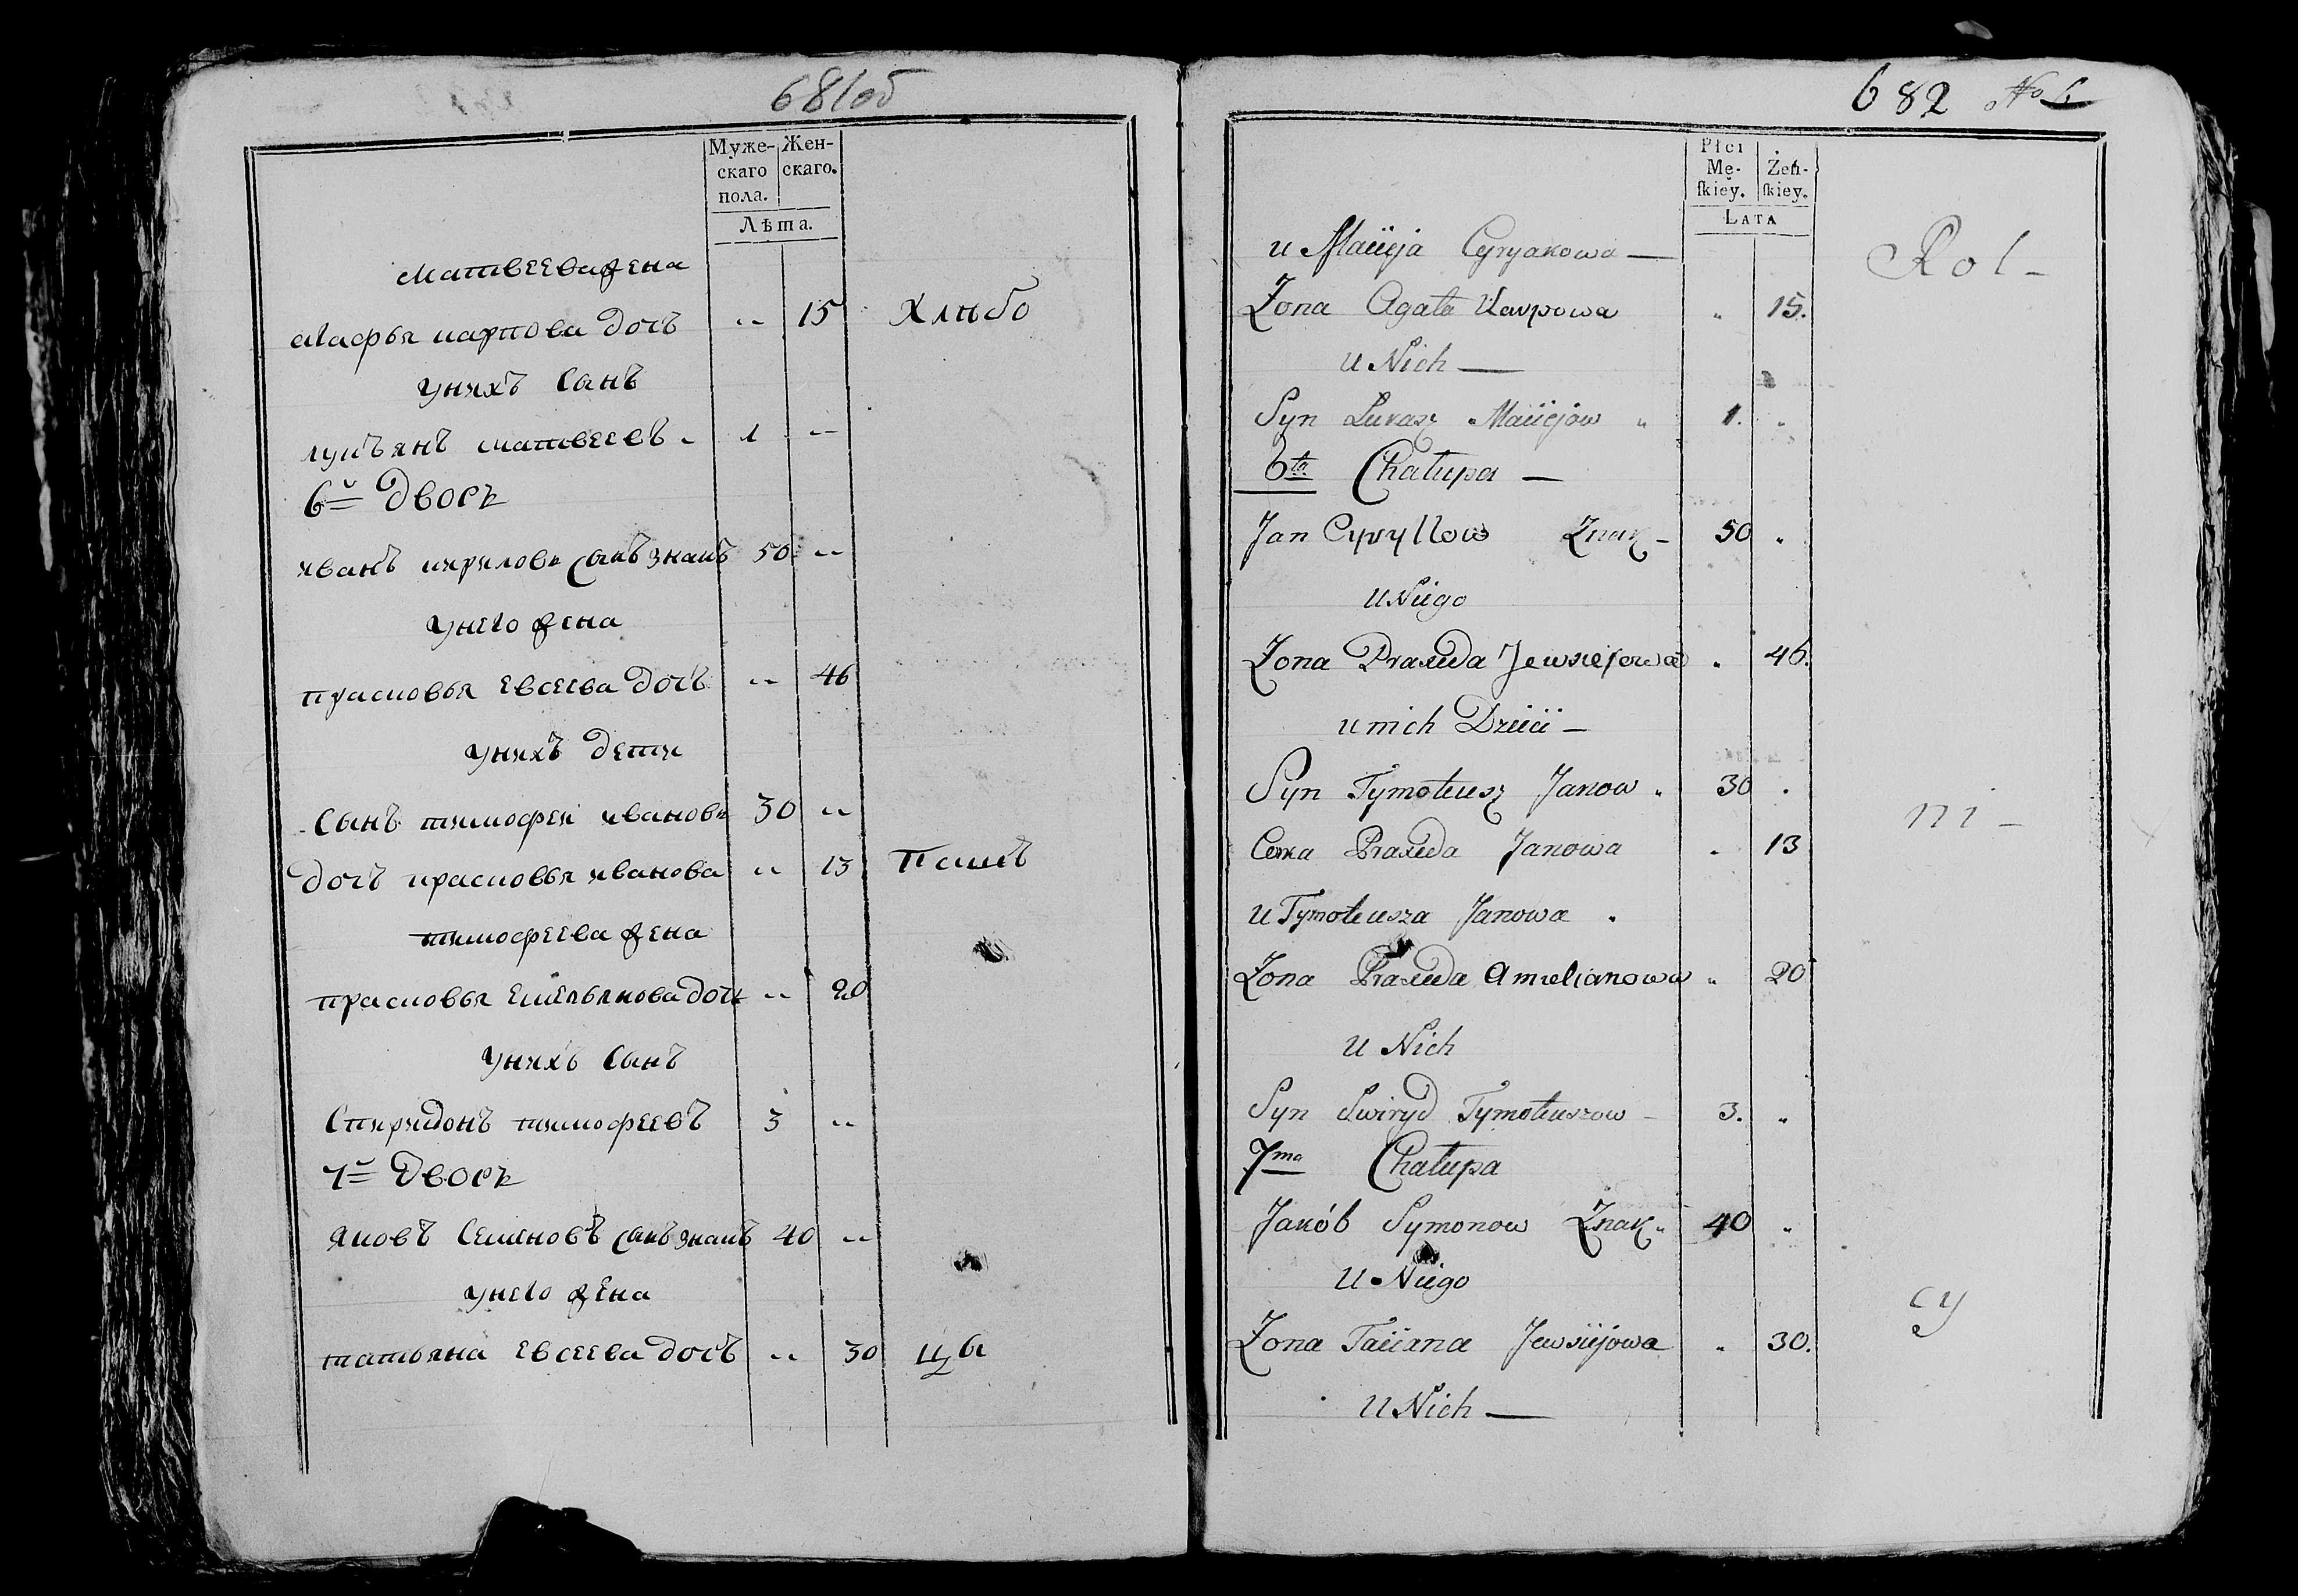 681об
Муже-
скаго
пола.
Жен-
скаго.
Лѣта.
матвеева жена
марфья карпова дочъ -- 15 Хлѣбо
унихъ Санъ
лукъянъ матвеевъ - 1 --
6й дворъ
иванъ кириловъ санъ знакъ 50 --
унего жена
прасковья евсеева дочъ -- 46
унихъ дети
Сынъ тимофеи ивановъ 30 --
дочъ прасковья иванова -- 13 паше
тимофеева жена
прасковья емельянова дочъ -- 20
унихъ санъ
Спиридонъ тимофеевъ 3 --
7й дворъ
яковъ Семеновъ санъ знакъ 40 --
унего жена
татьяна евсеева дочъ -- 30 цы
682 No 6
Płci
Mę-
ſkiey.
Żeń-
ſkiey.
Lata
u Macieja Cyryakowa —
Zona Agata Karpowa " 15.
u Nich —
Syn Lukasz Maciejow " 1. "
6ta Chalupa —
Jan Cyryllow Znak - 50 "
u Niego
Zona Praxeda Jewsiejowa " 46.
u nich Dzieci —
Syn Tymoteusz Janow " 30 .
Corka Praxeda Janowa - 13
u Tymoteusza Janowa .
Zona Praxeda Amelianowa " 20
u Nich
Syn Swiryd Tymoteuszow - 3. "
7ma Chalupa
Jakób Symonow Znak " 40 "
u Niego
Zona Taciana Jewsiejowa " 30.
u Nich —
Rol-
ni-
cy